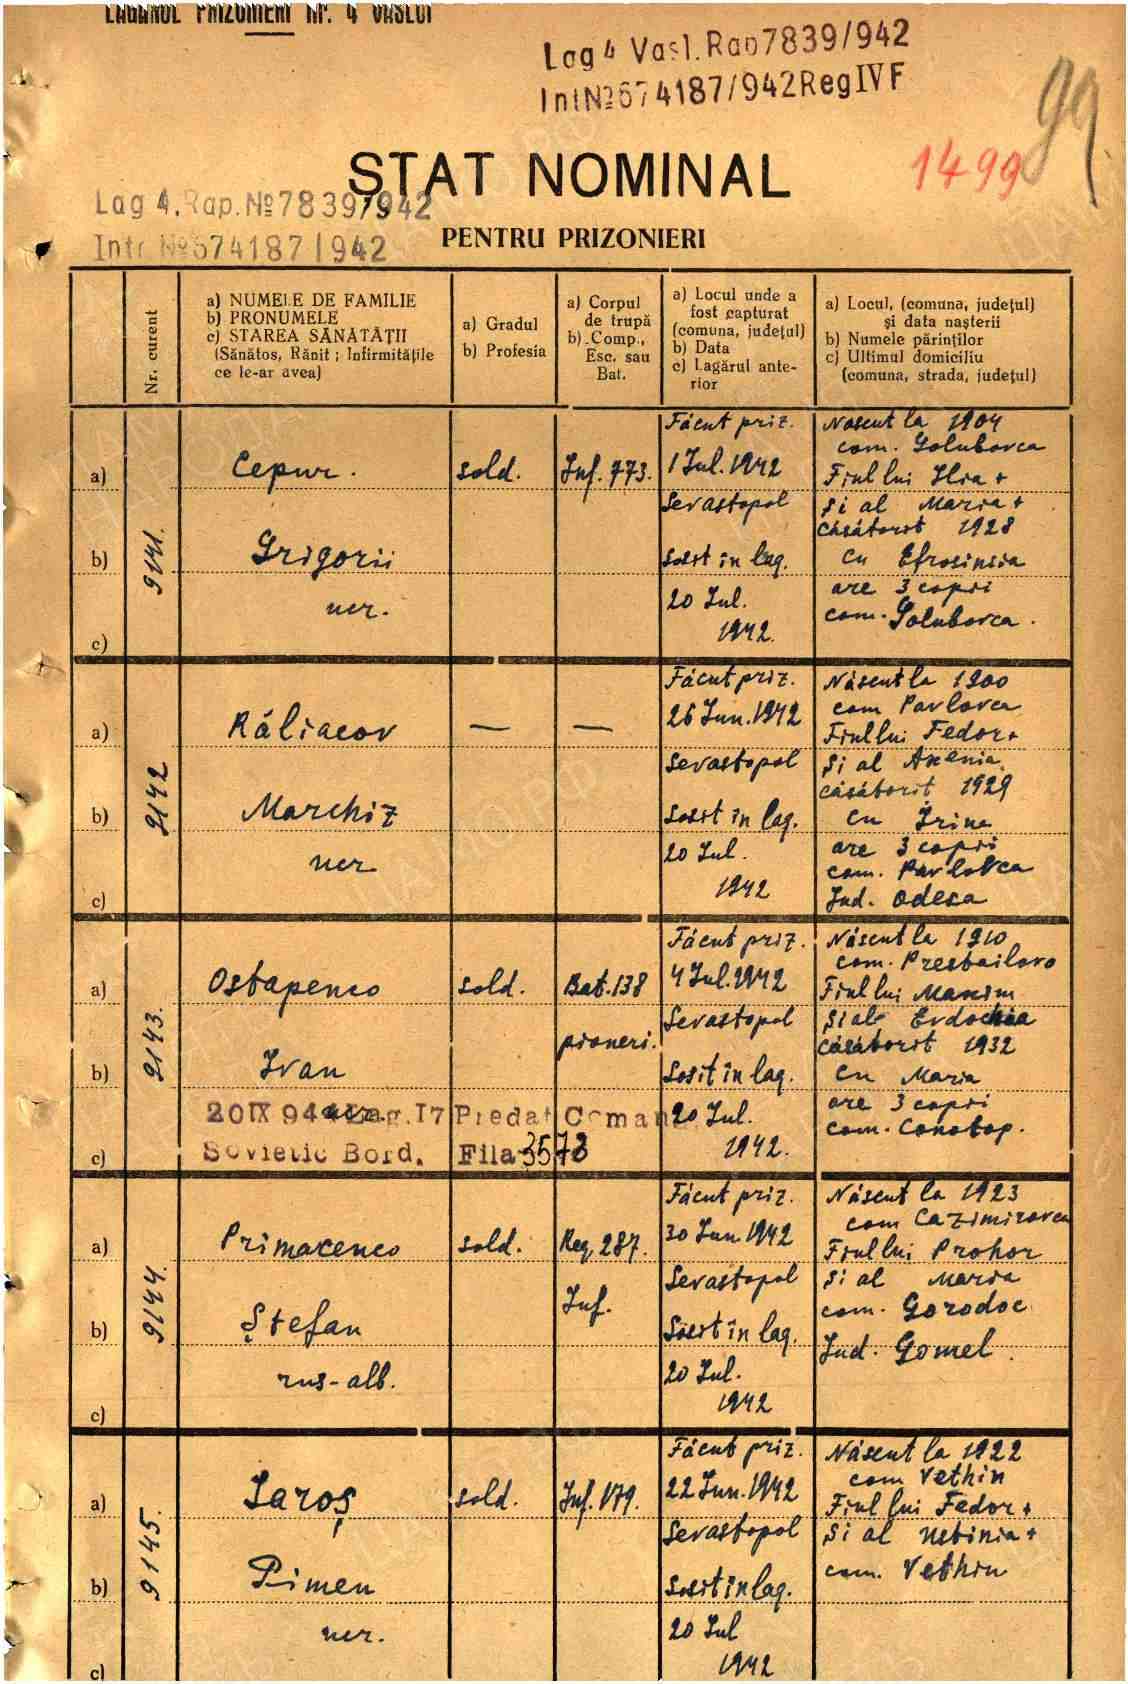 LAGĂRUL PRIZONIERI Nr. 4 VASLUI
Lag 4 Vasl. Rap 7839/942
Int № 674187/942 Reg IV F
99
1499
STAT NOMINAL
Lag 4. Rap. № 7839/942
Intr № 674187/942
PENTRU PRIZONIERI
Nr. curent
a) NUMELE DE FAMILIE
b) PRONUMELE
c) STAREA SĂNĂTĂȚII
(Sănătos, Rănit ; Infirmitățile
ce le-ar avea)
a) Gradul
b) Profesia
a) Corpul
de trupă
b) Comp.,
Esc. sau
Bat.
a) Locul unde a
fost capturat
(comuna, județul)
b) Data
c) Lagărul ante-
rior
a) Locul, (comuna, județul)
și data nașterii
b) Numele părinților
c) Ultimul domiciliu
(comuna, strada, județul)
9141.
a)
b)
c)
Cepur.
Grigorii
ucr.
sold.
Inf. 773.
Făcut priz.
1 Iul. 1942
Sevastopol
Sosit în lag.
20 Iul.
1942.
Născut la 1904
com. Golubovca
Fiul lui Ilia +
și al Maria +
căsătorit 1928
cu Efrosinia
are 3 copii
com. Golubovca.
9142
a)
b)
c)
Răliacov
Marchiz
ucr.
—
—
Făcut priz.
26 Iun. 1942
Sevastopol
Sosit în lag.
20 Iul.
1942
Născut la 1900
com Pavlovca
Fiul lui Fedor +
și al Axenia
căsătorit 1929
cu Irina
are 3 copii
com. Pavlovca
Jud. Odesa
9143.
a)
b)
c)
Ostapenco
Ivan
ucr.
sold.
Bat. 138
pioneri.
Făcut priz.
4 Iul. 1942
Sevastopol
Sosit în lag.
20 Iul.
1942.
Născut la 1910
com.
Fiul lui Maxim
și al Evdochia
căsătorit 1932
cu Maria
are 3 copii
com. Conotop.
20 IX 944 Lag. 17 Predat Comand.
Sovietic Bord. Fila 3573
9144.
a)
b)
c)
Primacenco
Ștefan
rus-alb.
sold.
Reg. 287.
Inf.
Făcut priz.
30 Iun. 1942
Sevastopol
Sosit în lag.
20 Iul.
1942
Născut la 1923
com Cazimirovca
Fiul lui Prohor
și al Maria
com. Gorodoc
Jud. Gomel.
9145.
a)
b)
c)
Iaroș
Pimen
ucr.
sold.
Inf. 179.
Făcut priz.
22 Iun. 1942
Sevastopol
Sosit în lag.
20 Iul
1942
Născut la 1922
com Vethin
Fiul lui Fedor +
și al Ustinia +
com. Vethin